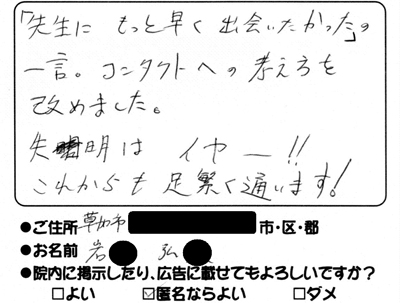 「先生に もっと早く 出会いたかった」の
一言。コンタクトへの考え方を
改めました。
失明は イヤー!!
これからも 足繁く通います!
●ご住所 草加市 市・区・郡
●お名前 岩 弘
●院内に掲示したり、広告に載せてもよろしいですか?
□よい ☑匿名ならよい □ダメ